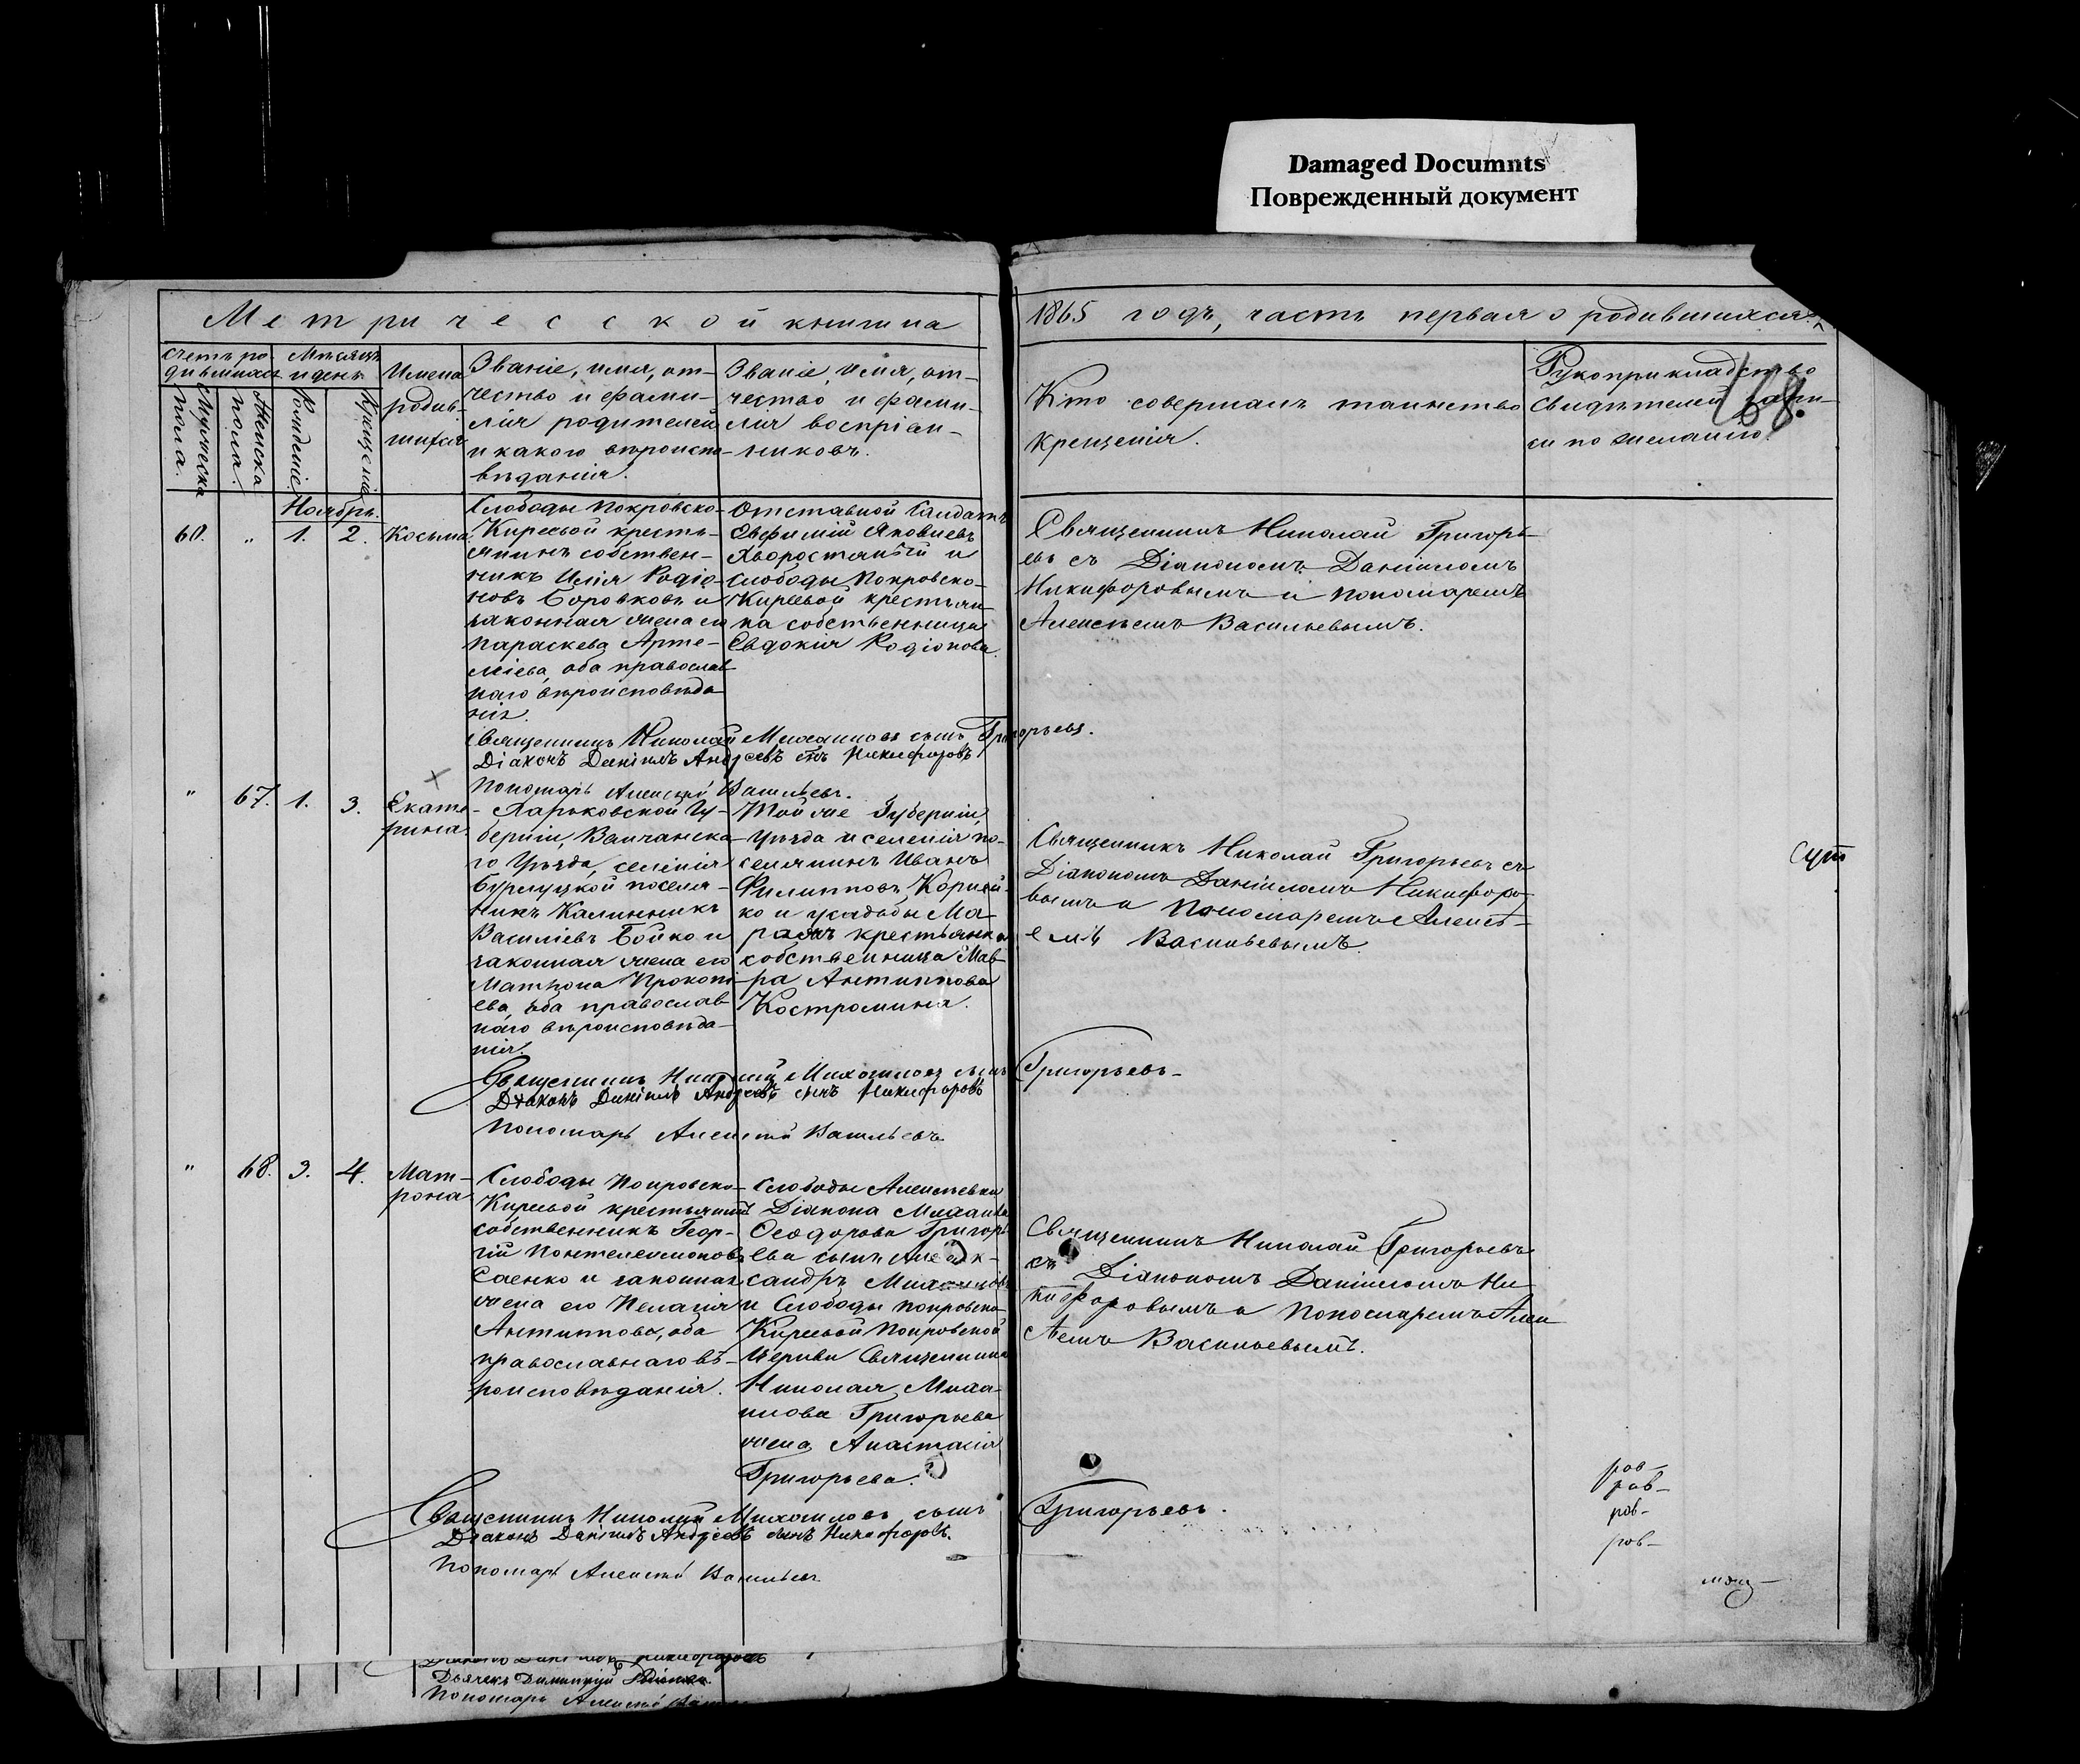 Damaged Documnts
Поврежденный документ
Метрической книги на
1865 годъ, часть первая о родившихся.
68.
Счетъ ро-
дившихся
Мѣсяцъ
и день.
Мужеска
пола.
Женска
пола.
Рожденіе.
Крещеніе.
Имена
родив-
шихся
Званіе, имя, от-
чество и фами-
лія родителей
и какого вѣроиспо-
вѣданія.
Званіе, имя, от-
чество и фами-
лія воспріем-
никовъ.
Кто совершалъ таинство
крещенія.
Рукоприкладство
свидѣтелей запи-
си по желанію.
Ноябрь.
60. " 1. 2. Косьма
Слободы Покровско-
Киреевой кресть-
янинъ собствен-
никъ Илія Родіо-
новъ Боровковъ и
законная жена его
Параскева Арте-
міева, оба православ
наго вѣроисповѣда
нія.
Отставной Салдатъ
Евфимій Яковлевъ
Хворостяный и
слободы Покровско-
Киреевой крестьян-
ка собственница
Евдокія Родіонова.
Священникъ Николай Григорь-
евъ съ Діакономъ Даніиломъ
Никифоровымъ и пономаремъ
Алексѣемъ Васильевымъ.
Священникъ Николай Михаиловъ сынъ Григорьевъ.
Діаконъ Даніилъ Андреевъ снъ Никифоровъ
Пономарь Алексѣй Васильевъ.
" 67. 1. 3. Екате-
рина.
Харьковской Гу-
берніи, Волчанска-
го Уѣзда, селенія
Бурлуцкой поселя-
никъ Калинникъ
Василіевъ Бойко и
законная жена его
Матрона Прокопі-
ева, оба православ
наго вѣроисповѣда-
нія.
Той же Губерніи,
Уѣзда и селенія по-
селянинъ Иванъ
Филипповъ Корней-
ко и усадьбы Ма-
крестьянка
собственница Мав-
ра Антиппова
Костромина.
Священникъ Николай Григорьевъ съ
Діакономъ Даніиломъ Никифоро-
вымъ и Пономаремъ Алексѣ-
емъ Васильевымъ.
Священникъ Николай Михаиловъ сынъ Григорьевъ
Діаконъ Даніилъ Андреевъ сынъ Никифоровъ
Пономарь Алексѣй Васильевъ
" 68. 3. 4. Мат-
рона
Слободы Покровско-
Киреевой крестьянинъ
собственникъ Геор-
гій Понтелеимоновъ
Саенко и законная
жена его Пелагія
Антиппова, оба
православнаго вѣ-
роисповѣданія.
Слободы Алексѣевки
Діакона Михаила
Ѳеодорова Григорь
ева сынъ Алек-
сандръ Михаиловъ
и Слободы Покровско-
Киреевой Покровской
Церкви Священника
Николая Миха-
илова Григорьева
жена Анастасія
Григорьева.
Священникъ Николай Григорьевъ
съ Діакономъ Даніиломъ Ни-
кифоровымъ и Пономаремъ Алек
сѣемъ Васильевымъ.
Священникъ Николай Михаиловъ сынъ Григорьевъ.
Діаконъ Даніилъ Андреевъ сынъ Никифоровъ.
Пономарь Алексѣй Васильевъ
ров-
ров-
ров-
ров-
Пономарь Алексѣй